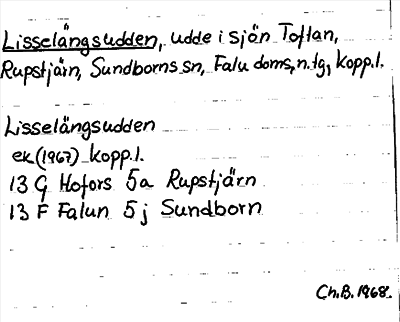 Lisselängsudden, udde i sjön Toftan,
Rupstjärn, Sundborns sn, Falu doms.n.tg, kopp.l.
Lisselängsudden
ek(1967) kopp.l.
13 G Hofors 5a Rupstjärn
13 F Falun 5j Sundborn
Ch.B.1968.